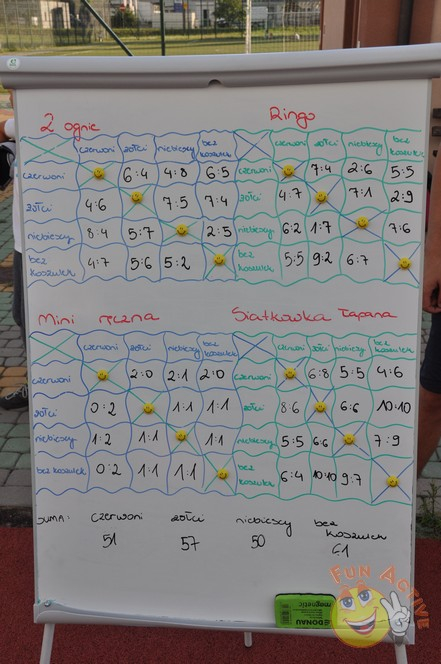 2 ognie
czerwoni żółci niebiescy bez koszulek
czerwoni 6:4 4:8 6:5
żółci 4:6 7:5 7:4
niebiescy 8:4 5:7 2:5
bez koszulek 4:7 5:6 5:2
Ringo
czerwoni żółci niebiescy bez koszulek
czerwoni 7:4 2:6 5:5
żółci 4:7 7:1 2:9
niebiescy 6:2 1:7 7:6
bez koszulek 5:5 9:2 6:7
Mini ręczna
czerwoni żółci niebiescy bez koszulek
czerwoni 2:0 2:1 2:0
żółci 0:2 1:1 1:1
niebiescy 1:2 1:1 1:1
bez koszulek 0:2 1:1 1:1
Siatkówka Łapana
czerwoni żółci niebiescy bez koszulek
czerwoni 6:8 5:5 4:6
żółci 8:6 6:6 10:10
niebiescy 5:5 6:6 7:9
bez koszulek 6:4 10:10 9:7
SUMA: czerwoni żółci niebiescy bez koszulek
51 57 50 61
magnetic
DONAU
FUN ACTIVE